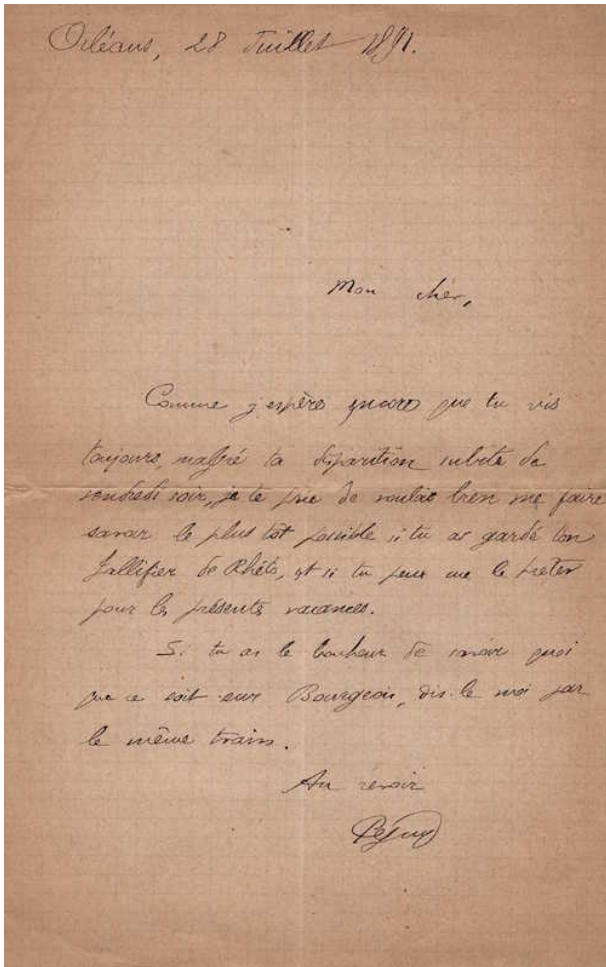 Orléans, 28 Juillet 1891.
Mon cher,
Comme j'espère encore que tu vis
toujours, malgré ta disparition subite de
vendredi soir, je te prie de vouloir bien me faire
savoir le plus tôt possible si tu as gardé ton
Jallifier de Rhéto, et si tu peux me le prêter
pour les présentes vacances.
Si tu as le bonheur de savoir quoi
que ce soit sur Bourgeois, dis-le moi par
le même train.
Au revoir
Péguy